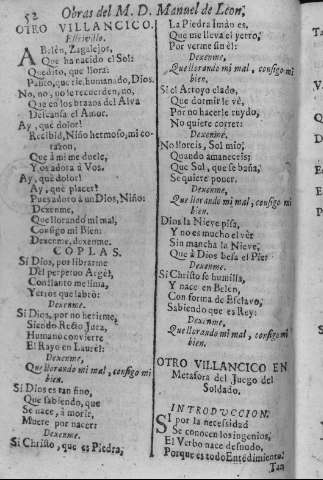 52 Obras del M. D. Manuel de Leon,
OTRO VILLANCICO.
Estrivillo.
A Belèn, Zagalejos,
Que ha nacido el Sol:
Quedito, que llora:
Passito, que es humanado, Dios.
No, no, no le recuerden, no,
Que en los brazos del Alva
Descansa el Amor.
Ay, què dolor!
Recibid, Niño hermoso, mi corazon,
Que à mi me duele,
Y os adora à Vos.
Ay, què dolor!
Ay, què placer!
Pues adoro à un Dios, Niño:
Dexenme,
Que llorando mi mal,
Consigo mi Bien:
Dexenme, dexenme.
COPLAS.
Si Dios, por librarme
Del perpetuo Argèl,
Constante me lima,
Yerros que labrò:
Dexenme.
Si Dios, por no herirme,
Siendo Recto Juez,
Humano convierte
El Rayo en Laurèl:
Dexenme,
Que llorando mi mal, consigo mi
bien.
Si Dios es tan fino,
Que sabiendo, que
Se nace, à morir,
Muere por nacer:
Dexenme.
Si Christo, que es Piedra,
La Piedra Imàn es,
Que me lleva el yerro,
Por verme sin èl:
Dexenme,
Que llorando mi mal, consigo mi
bien.
Si el Arroyo elado,
Que dormir le vè,
Por no hacerle ruydo,
No quiere correr:
Dexenme.
No lloreis, Sol mio,
Quando amaneceis;
Que Sol, que se baña,
Se quiere poner.
Dexenme,
Que llorando mi mal, consigo mi
bien.
Dios la Nieve pisa,
Y no es mucho el vèr
Sin mancha la Nieve,
Que à Dios besa el Pie:
Dexenme.
Si Christo se humilla,
Y nace en Belèn,
Con forma de Esclavo,
Sabiendo que es Rey:
Dexenme,
Que llorando mi mal, consigo mi
bien.
OTRO VILLANCICO EN
Metafora del Juego del
Soldado.
INTRODUCCION.
SI por la necessidad
Se conocen los ingenios,
El Verbo nace desnudo,
Porque es todo Entedimiento.
Tan